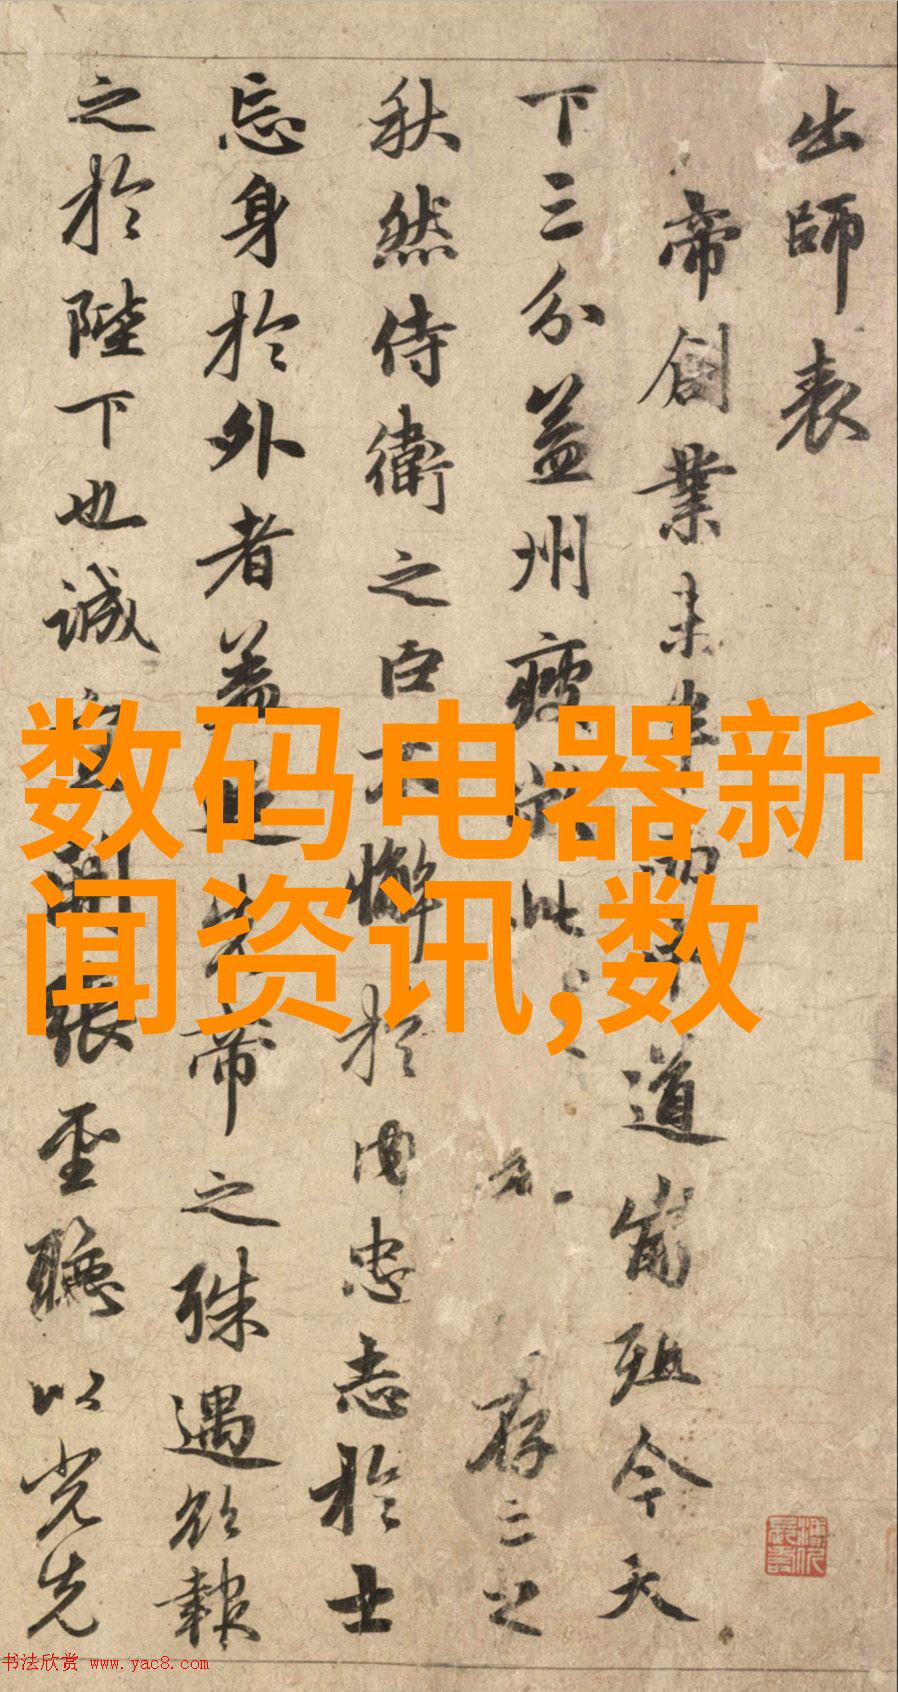 出師表
帝創業未半而中道崩殂今天
下三分益州疲敝此存亡之
秋然侍衛之臣不懈於内忠志於士
忘身於外者蓋追先帝之殊遇欲報
之於陛下也誠宜開張聖聽以光先
数码电器新
闻资讯,数
书法欣赏 www.yac8.com